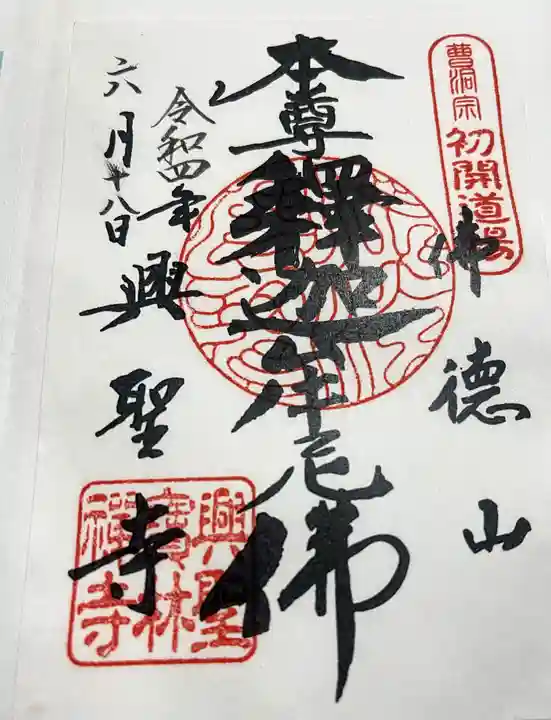 曹洞宗
初開道場
佛德山
本尊釋迦牟尼佛
令和四年
六月十八日
興聖寺
興聖
寶林
禅寺